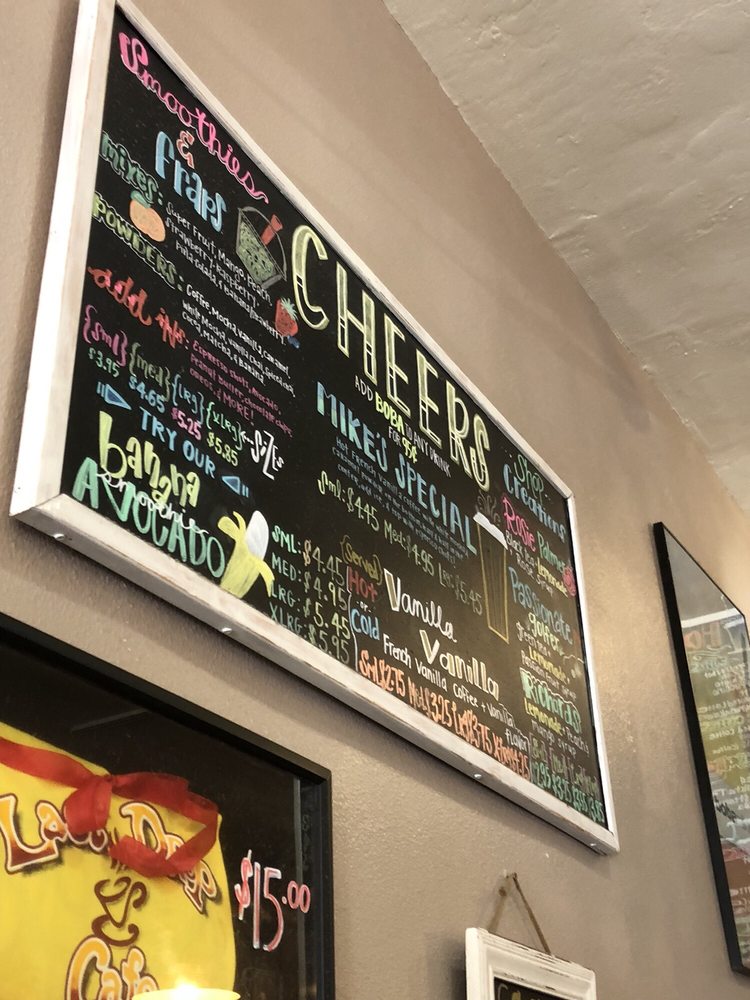 Smoothies
&
Fraps
Mixes: Super Fruit, Mango, Peach,
Strawberry, Raspberry,
Piña Colada, & Banana/Strawberry
Powders: Coffee, Mocha, Vanilla, Caramel,
White Mocha, Vanilla Chai, Spiced Chai,
Cocoa, Matcha, & Banana
add ins: Espresso Shots, Avocado,
Peanut Butter, Chocolate Chips,
Oreos, & MORE!
{sml} {med} {lrg} {xlrg} ← SIZES
$3.95 $4.65 $5.25 $5.85
TRY OUR
banana
AVOCADO
smoothie
SML: $4.45
MED: $4.95
LRG: $5.45
XLRG: $5.95
CHEERS
ADD BOBA TO ANY DRINK
FOR 95¢
MIKE'S SPECIAL
Hot French Vanilla coffee with
Sml: $4.45 Med: $4.95 Lrg: $5.45
{Served}
Hot
or
Cold
Vanilla
Vanilla
French Vanilla Coffee + Vanilla
flavor
Sml $2.75 Med $3.25 Lrg $3.75
Shop
Creations
Rosie Palmer
Black Tea Lemonade
Rose Syrup
Passionate
golfer
Green Tea
Lemonade +
Richard's
Lemonade + Peach
Mango Syrup
Lava Drop
Cafe
$15.00